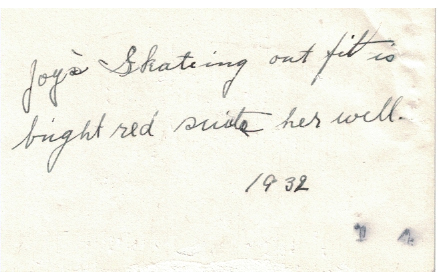 Joy's Skateing out fit is
bright red suits her well.
1932